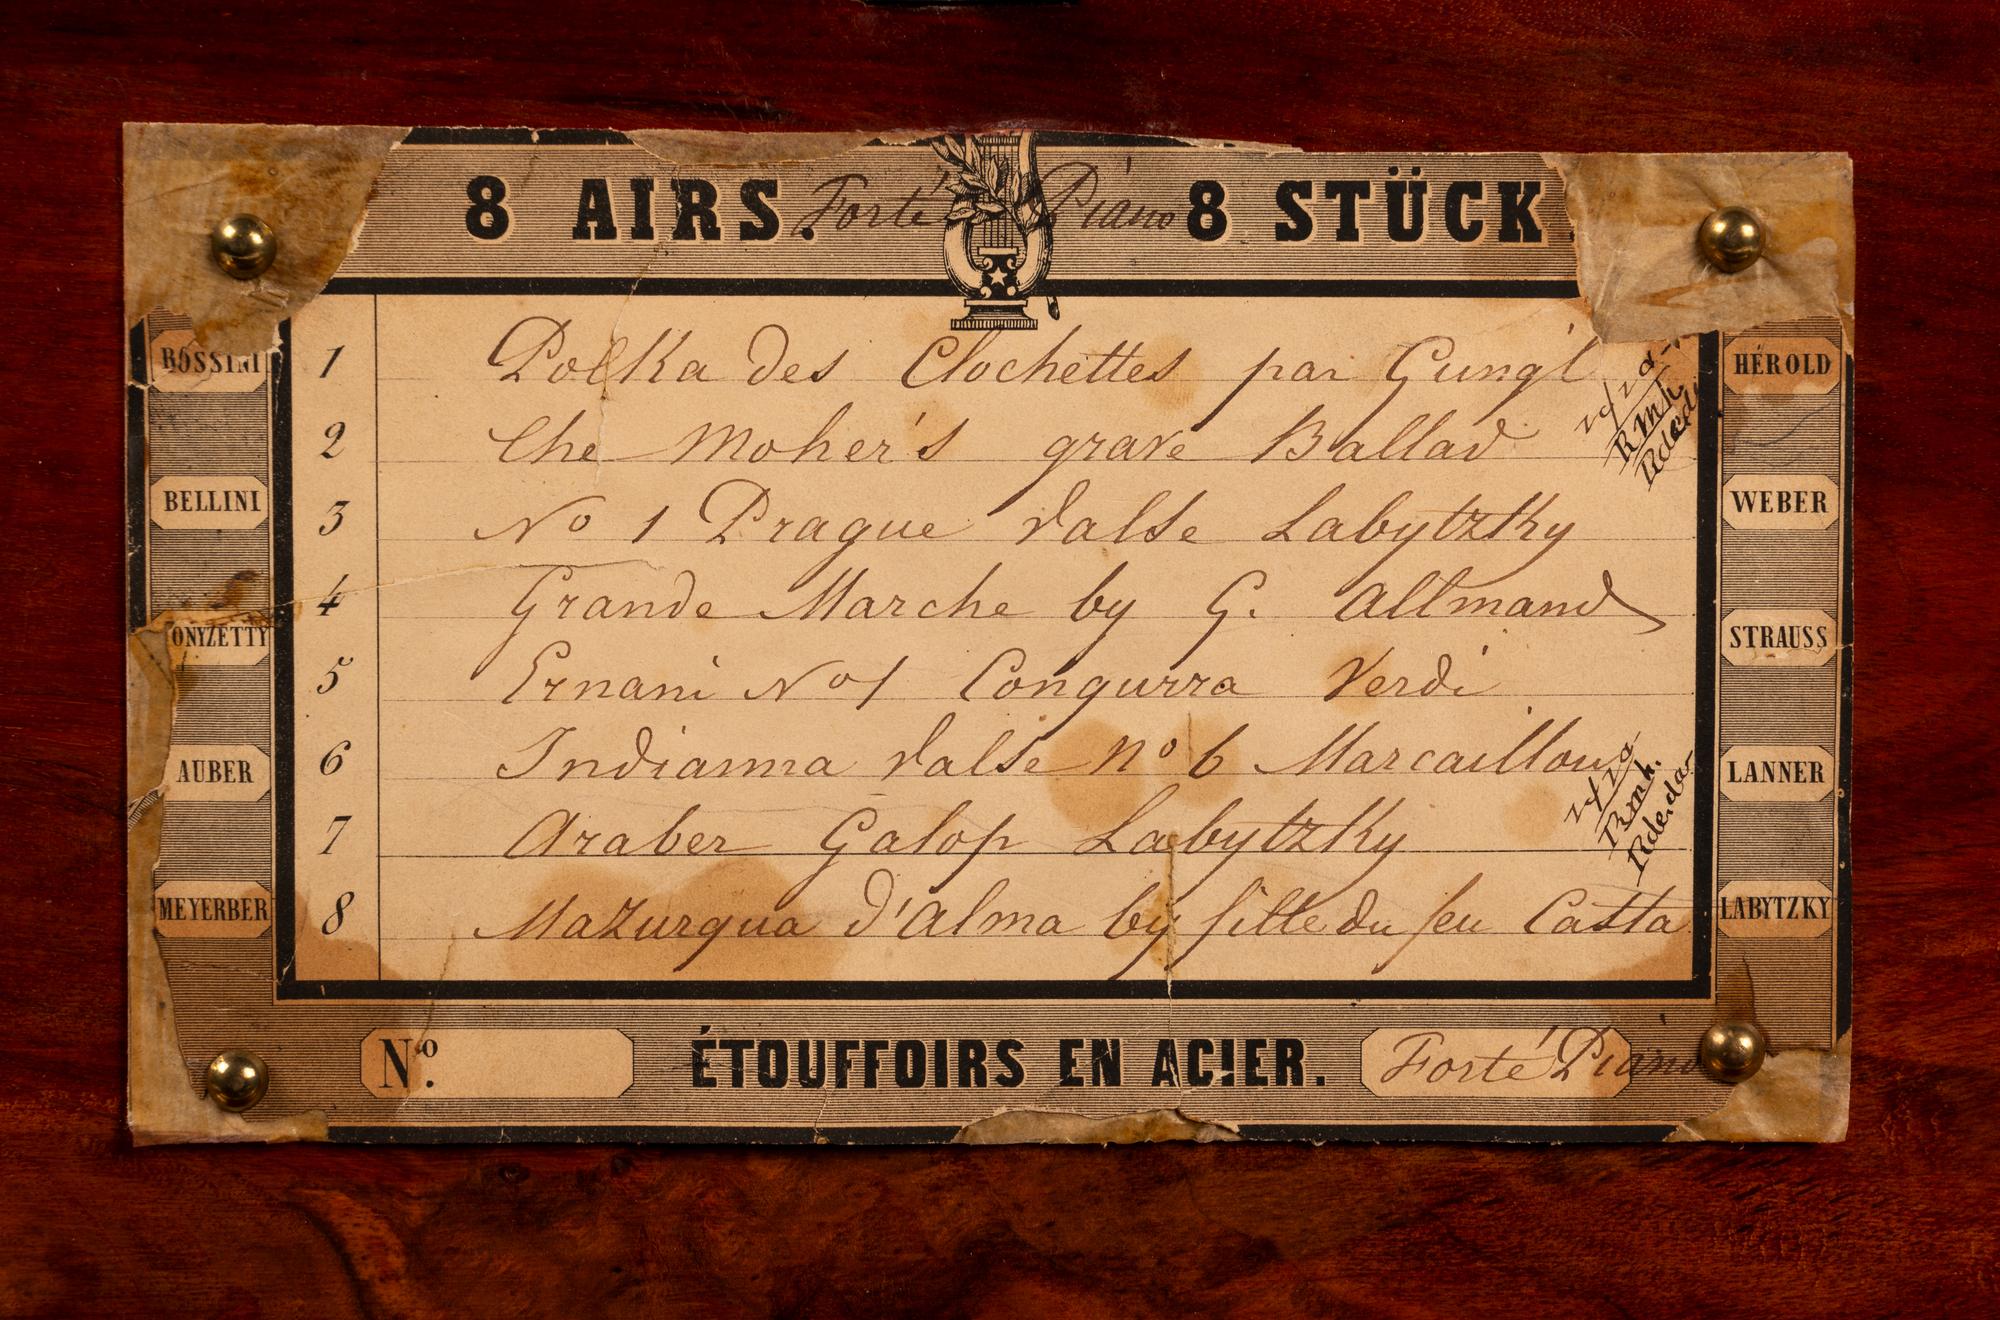 8 AIRS. Forté Piano 8 STÜCK.
ROSSINI
BELLINI
ONYZETTY
AUBER
MEYERBER
1 Polka des Clochettes par Gungl
2 The Moher's grave Ballad
3 No 1 Prague Valse Labytzky
4 Grande Marche by G. Allmand
5 Ernani No 1 Congurra Verdi
6 Indianna Valse no 6 Marcaillou
7 Araber Galop Labytzky
8 Mazurqua d'Alma by fille du feu Casta
HÉROLD
WEBER
STRAUSS
LANNER
LABYTZKY
No. ÉTOUFFOIRS EN ACIER. Forté Piano